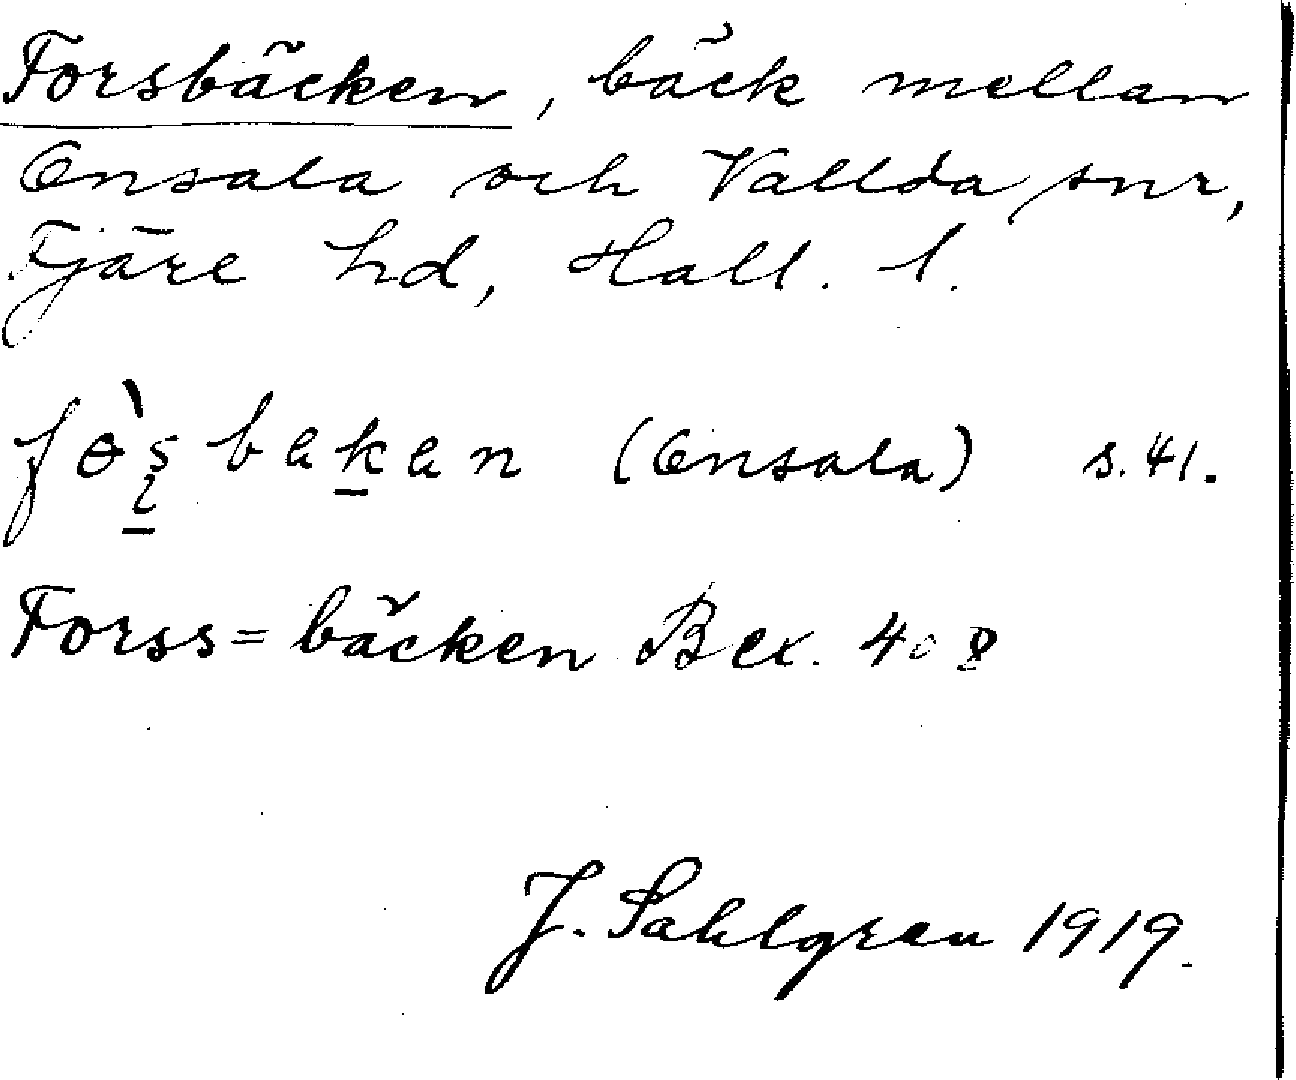 Forsbäcken, bäck mellan
Onsala och Vallda snr,
Fjäre hd, Hall. l.
(Onsala) s. 41.
Forss=bäcken Bex. 408
J. Sahlgren 1919.